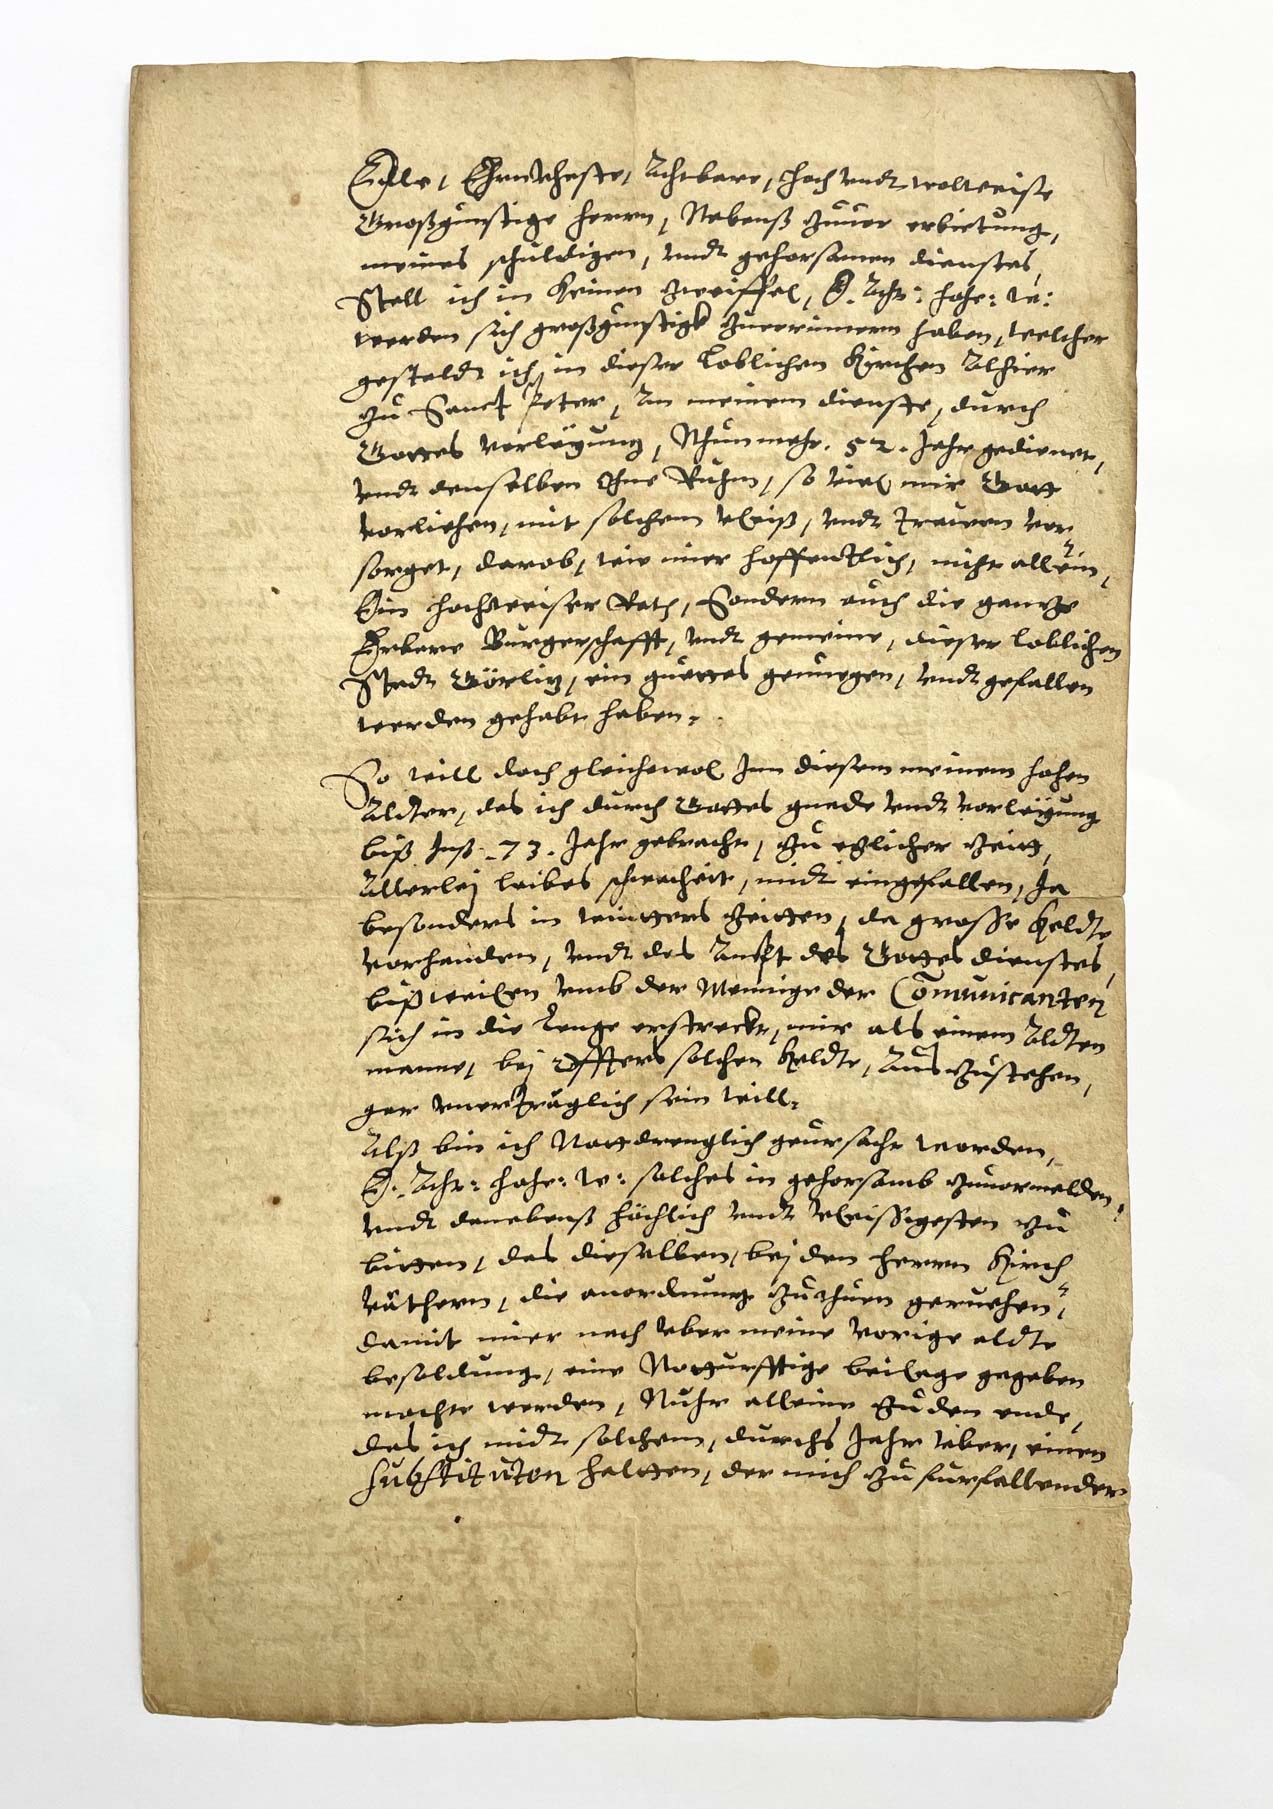 Edle, Ehrnvheste, Achtbare, hoch vndt wolweise
Großgünstige herrn, Nebenß zuuor erbietung,
meines schuldigen, vndt gehorsamen dienstes,
Stell ich in keinen zweiffel, E. Acht: hohe: w:
werden sich großgünstigk zuerinnern haben, welcher
gestaldt ich in dieser loblichen Kirchen Alhier
zu Sanct Peter, An meinem dienste, durch
Gottes verleyung, Nhun mehr . 52 . Jahr gedienet,
vndt denselben Ohne Ruhm, so viel mir Gott
vorliehen, mit solchem vleiß, vndt trawen ver¬
sorget, darob, wie mier hoffentlich, nicht allein,
Ein hochweiser Rath, Sondern auch die gantze
Erbare Burgerschafft, vndt gemeine, dieser loblichen
Stadt Görlitz, ein guettes genuegen, vndt gefallen
werden gehabt haben.
So will doch gleichwol Jnn diesem meinem hohen
Aldter, das ich durch Gottes gnade vndt vorleyung
biß Jnß . 73 . Jahr gebracht, zu etzlicher Zeitt,
Allerlej leibes schwacheit, midt eingefallen, Ja
besonders in winters Zeitten, da grosse Keldte
vorhanden, vndt das Ampt des Gottes dienstes,
bißweilen vmb der Mennige der Comunicanten
sich in die lenge erstreckt, mir als einem Aldten
manne, bej Offters solchen Keldte, Aus zustehen,
gar vnerträglich sein will.
Alß bin ich Nottdrenglich geursacht worden,
E. Acht: hohe: w: solches in gehorsamb zuuormelden
vndt danebenß höchlich vndt vleissigesten zu
bitten, das dieselben, bej den herrn Kirch
Väthern, die anordnung zu thuen geruehen,
damit mier nach vber meine vorige aldte
besoldung, eine Notturfftige beilage gegeben
mochte werden, Nuhr alleine zu dem ende,
das ich midt solchem, durchs Jahr vber, einen
Substituten haltten, der mich zu furfallender